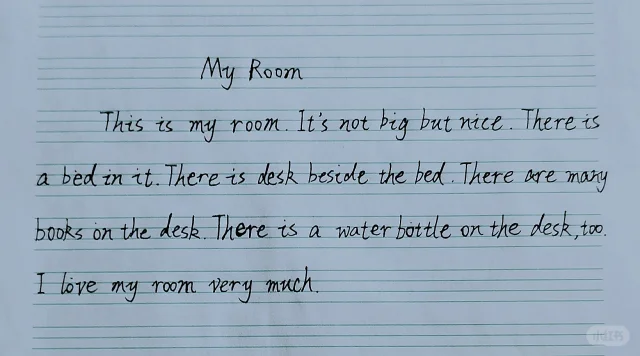 My Room
This is my room. It's not big but nice. There is
a bed in it. There is desk beside the bed. There are many
books on the desk. There is a water bottle on the desk, too.
I love my room very much.
小红书